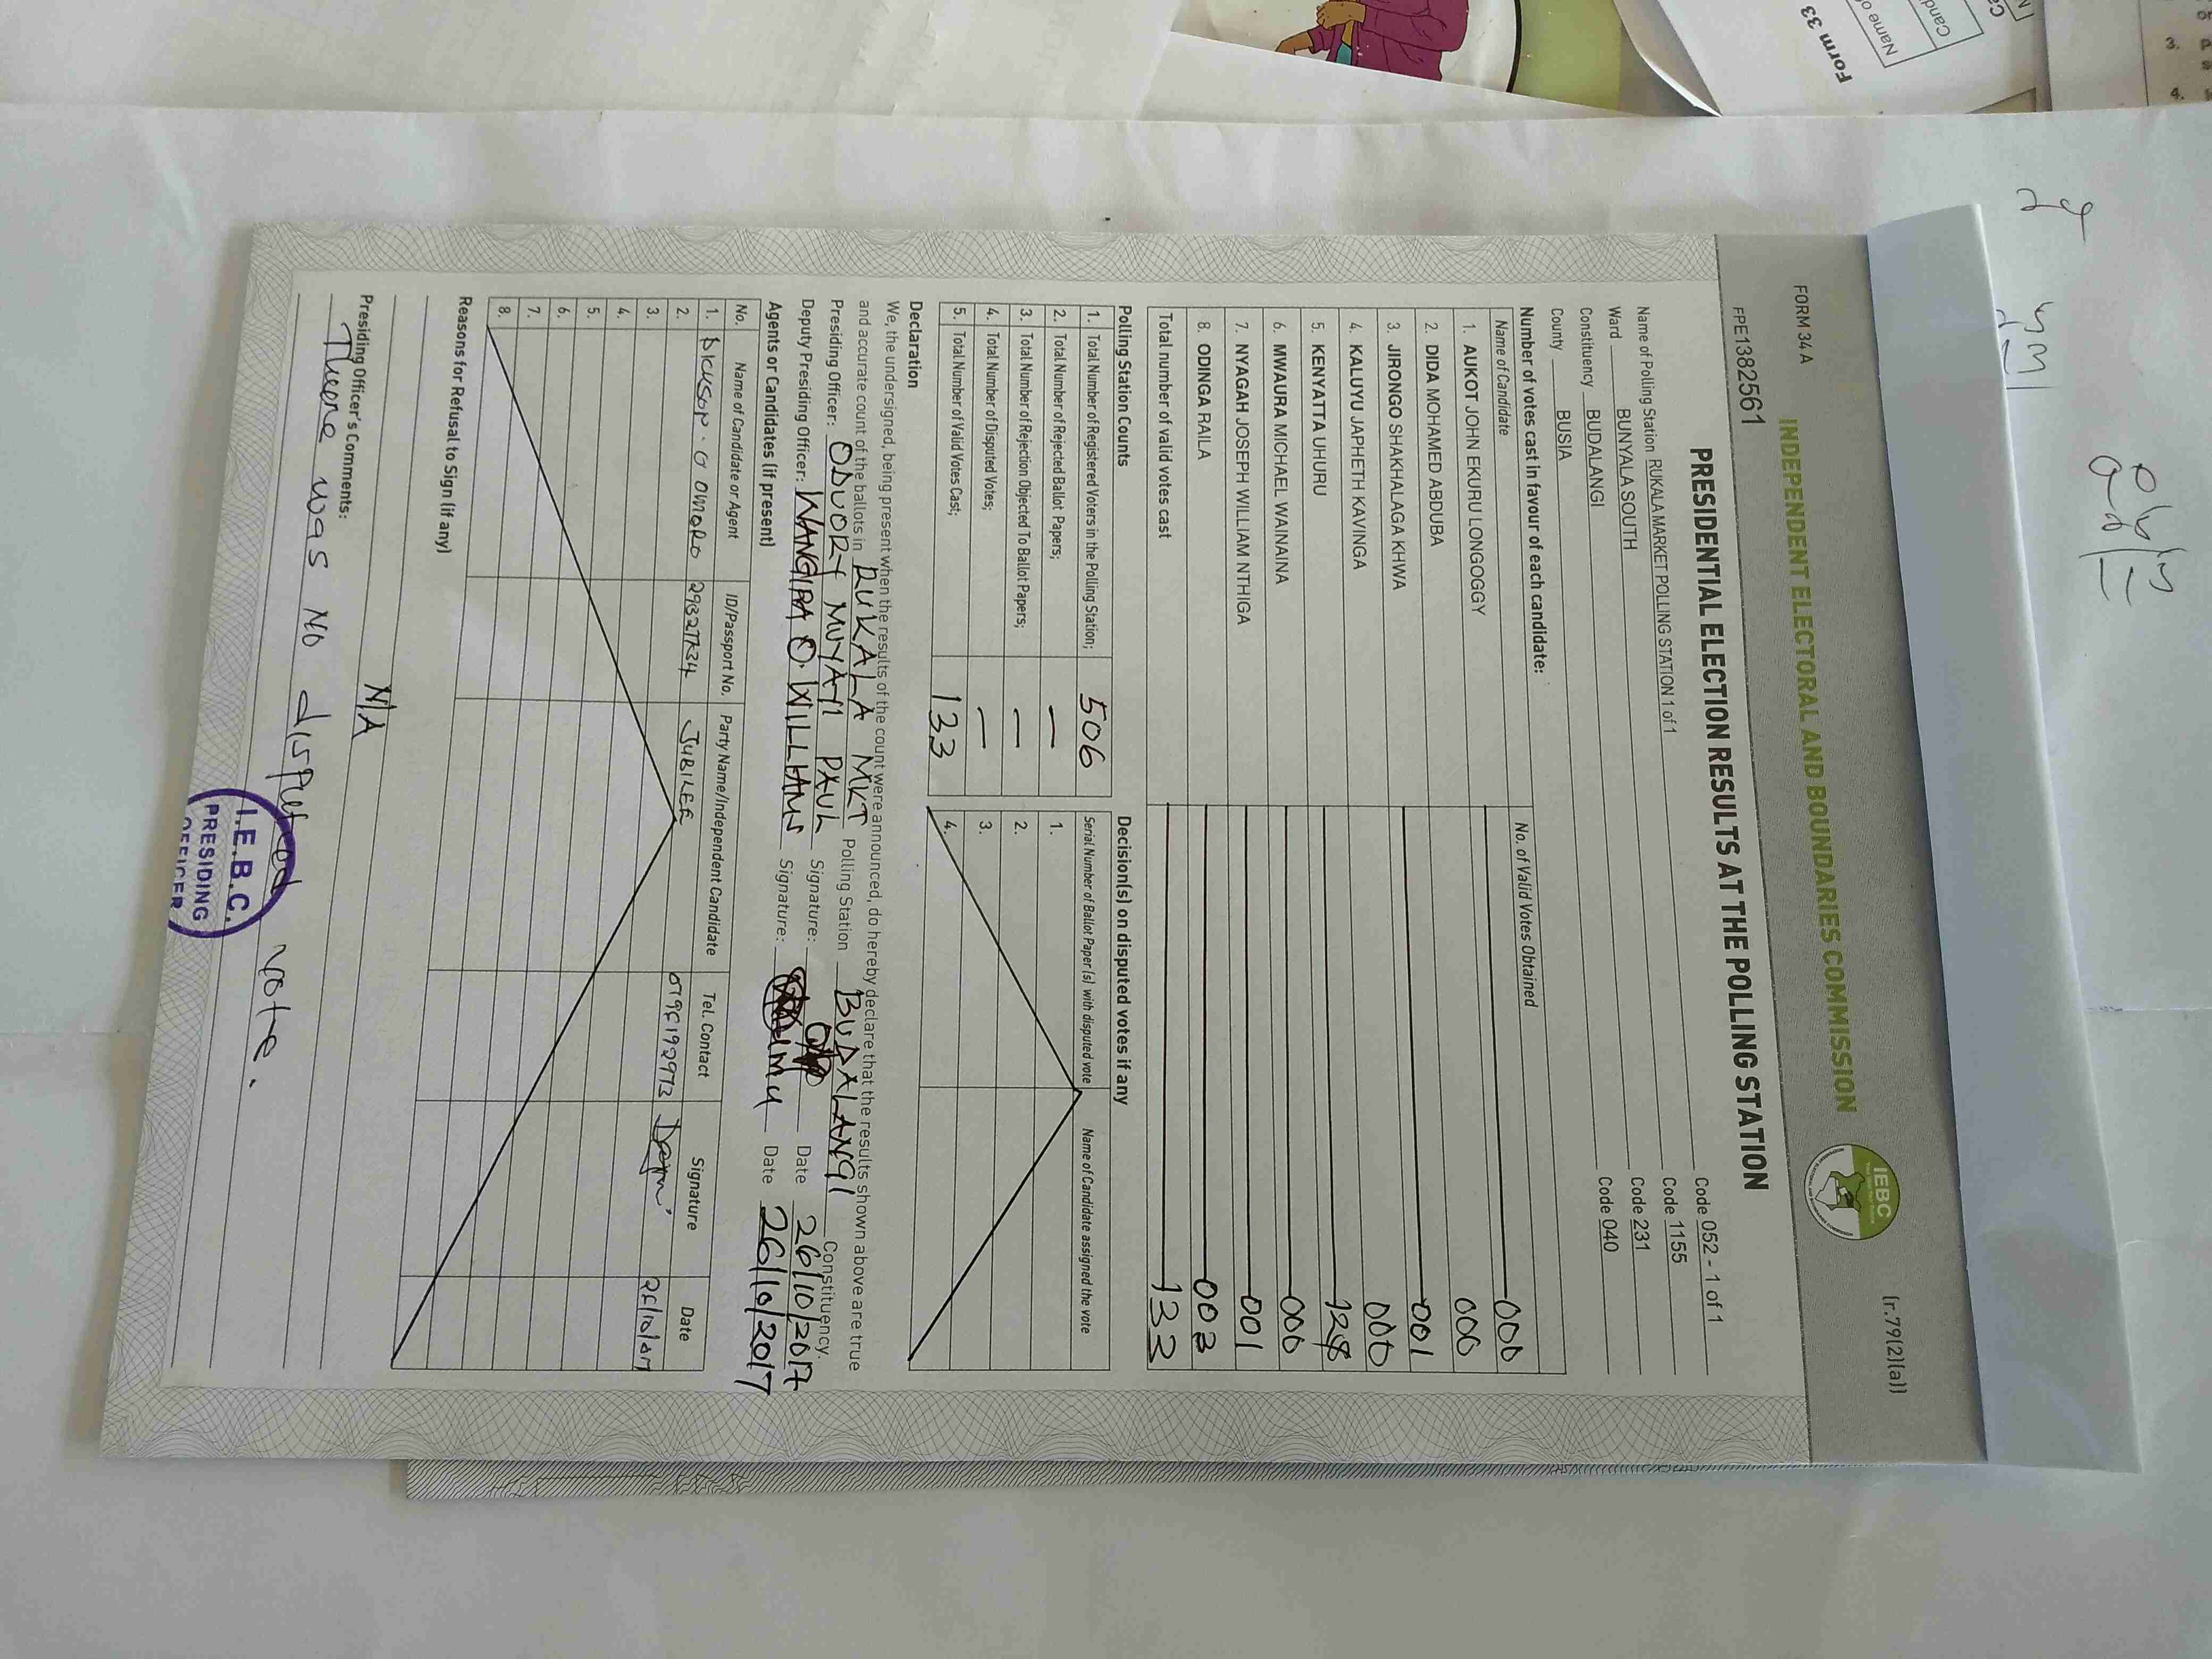 FORM 34 A
(r.79(2)(a))
INDEPENDENT ELECTORAL AND BOUNDARIES COMMISSION
IEBC
FPE1382561
PRESIDENTIAL ELECTION RESULTS AT THE POLLING STATION
Name of Polling Station RUKALA MARKET POLLING STATION 1 of 1 Code 052 - 1 of 1
Ward BUNYALA SOUTH Code 1155
Constituency BUDALANGI Code 231
County BUSIA Code 040
Number of votes cast in favour of each candidate:
Name of Candidate No. of Valid Votes Obtained
1. AUKOT JOHN EKURU LONGOGGY 000
2. DIDA MOHAMED ABDUBA 000
3. JIRONGO SHAKHALAGA KHWA 001
4. KALUYU JAPHETH KAVINGA 000
5. KENYATTA UHURU 128
6. MWAURA MICHAEL WAINAINA 000
7. NYAGAH JOSEPH WILLIAM NTHIGA 001
8. ODINGA RAILA 003
Total number of valid votes cast 133
Polling Station Counts
1. Total Number of Registered Voters in the Polling Station; 506
2. Total Number of Rejected Ballot Papers; —
3. Total Number of Rejection Objected To Ballot Papers; —
4. Total Number of Disputed Votes; —
5. Total Number of Valid Votes Cast; 133
Decision(s) on disputed votes if any
Serial Number of Ballot Paper (s) with disputed vote Name of Candidate assigned the vote
1.
2.
3.
4.
Declaration
We, the undersigned, being present when the results of the count were announced, do hereby declare that the results shown above are true
and accurate count of the ballots in RUKALA MKT Polling Station BUDALANGI Constituency.
Presiding Officer: ODUORY MUYATI PAUL Signature: Date 26/10/2017
Deputy Presiding Officer: WANGIRA O. WILLIAMS Signature: Date 26/10/2017
Agents or Candidates (if present)
No. Name of Candidate or Agent ID/Passport No. Party Name/Independent Candidate Tel. Contact Signature Date
1. DICKSON. G OMORO 29327734 JUBILEE
2.
3.
4.
5.
6.
7.
8.
Reasons for Refusal to Sign (if any)
N/A
Presiding Officer's Comments:
There was No disputed vote.
I.E.B.C.
PRESIDING
OFFICER
Form 33